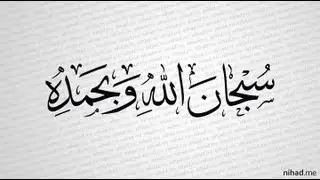 سُبْحَانَ اللهِ وَبِحَمْدِهُ
nihad.me